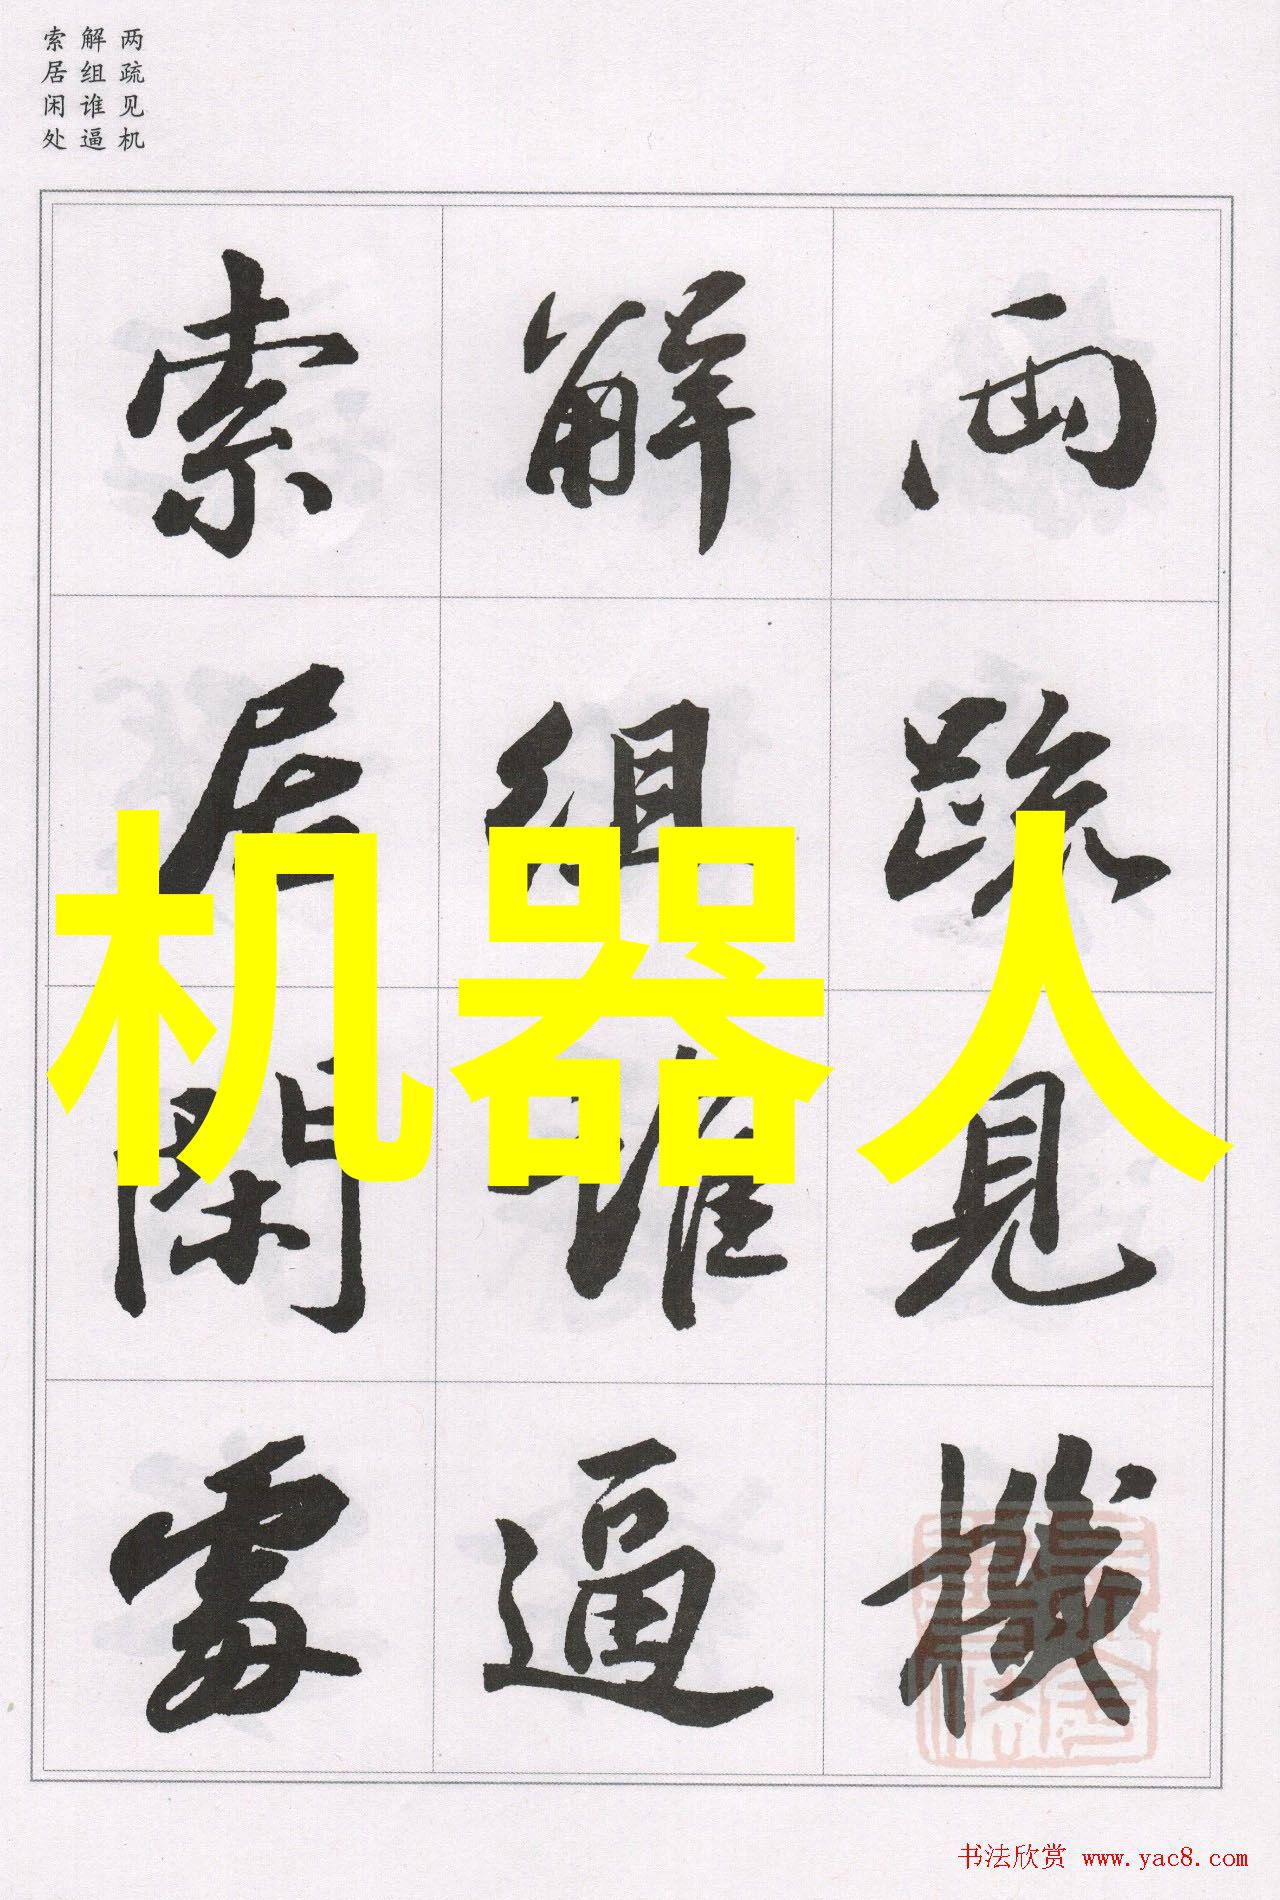 两疏见机
解组谁逼
索居闲处
兩疏見機
解組誰逼
索居閑處
机器人
书法欣赏 www.yac8.com